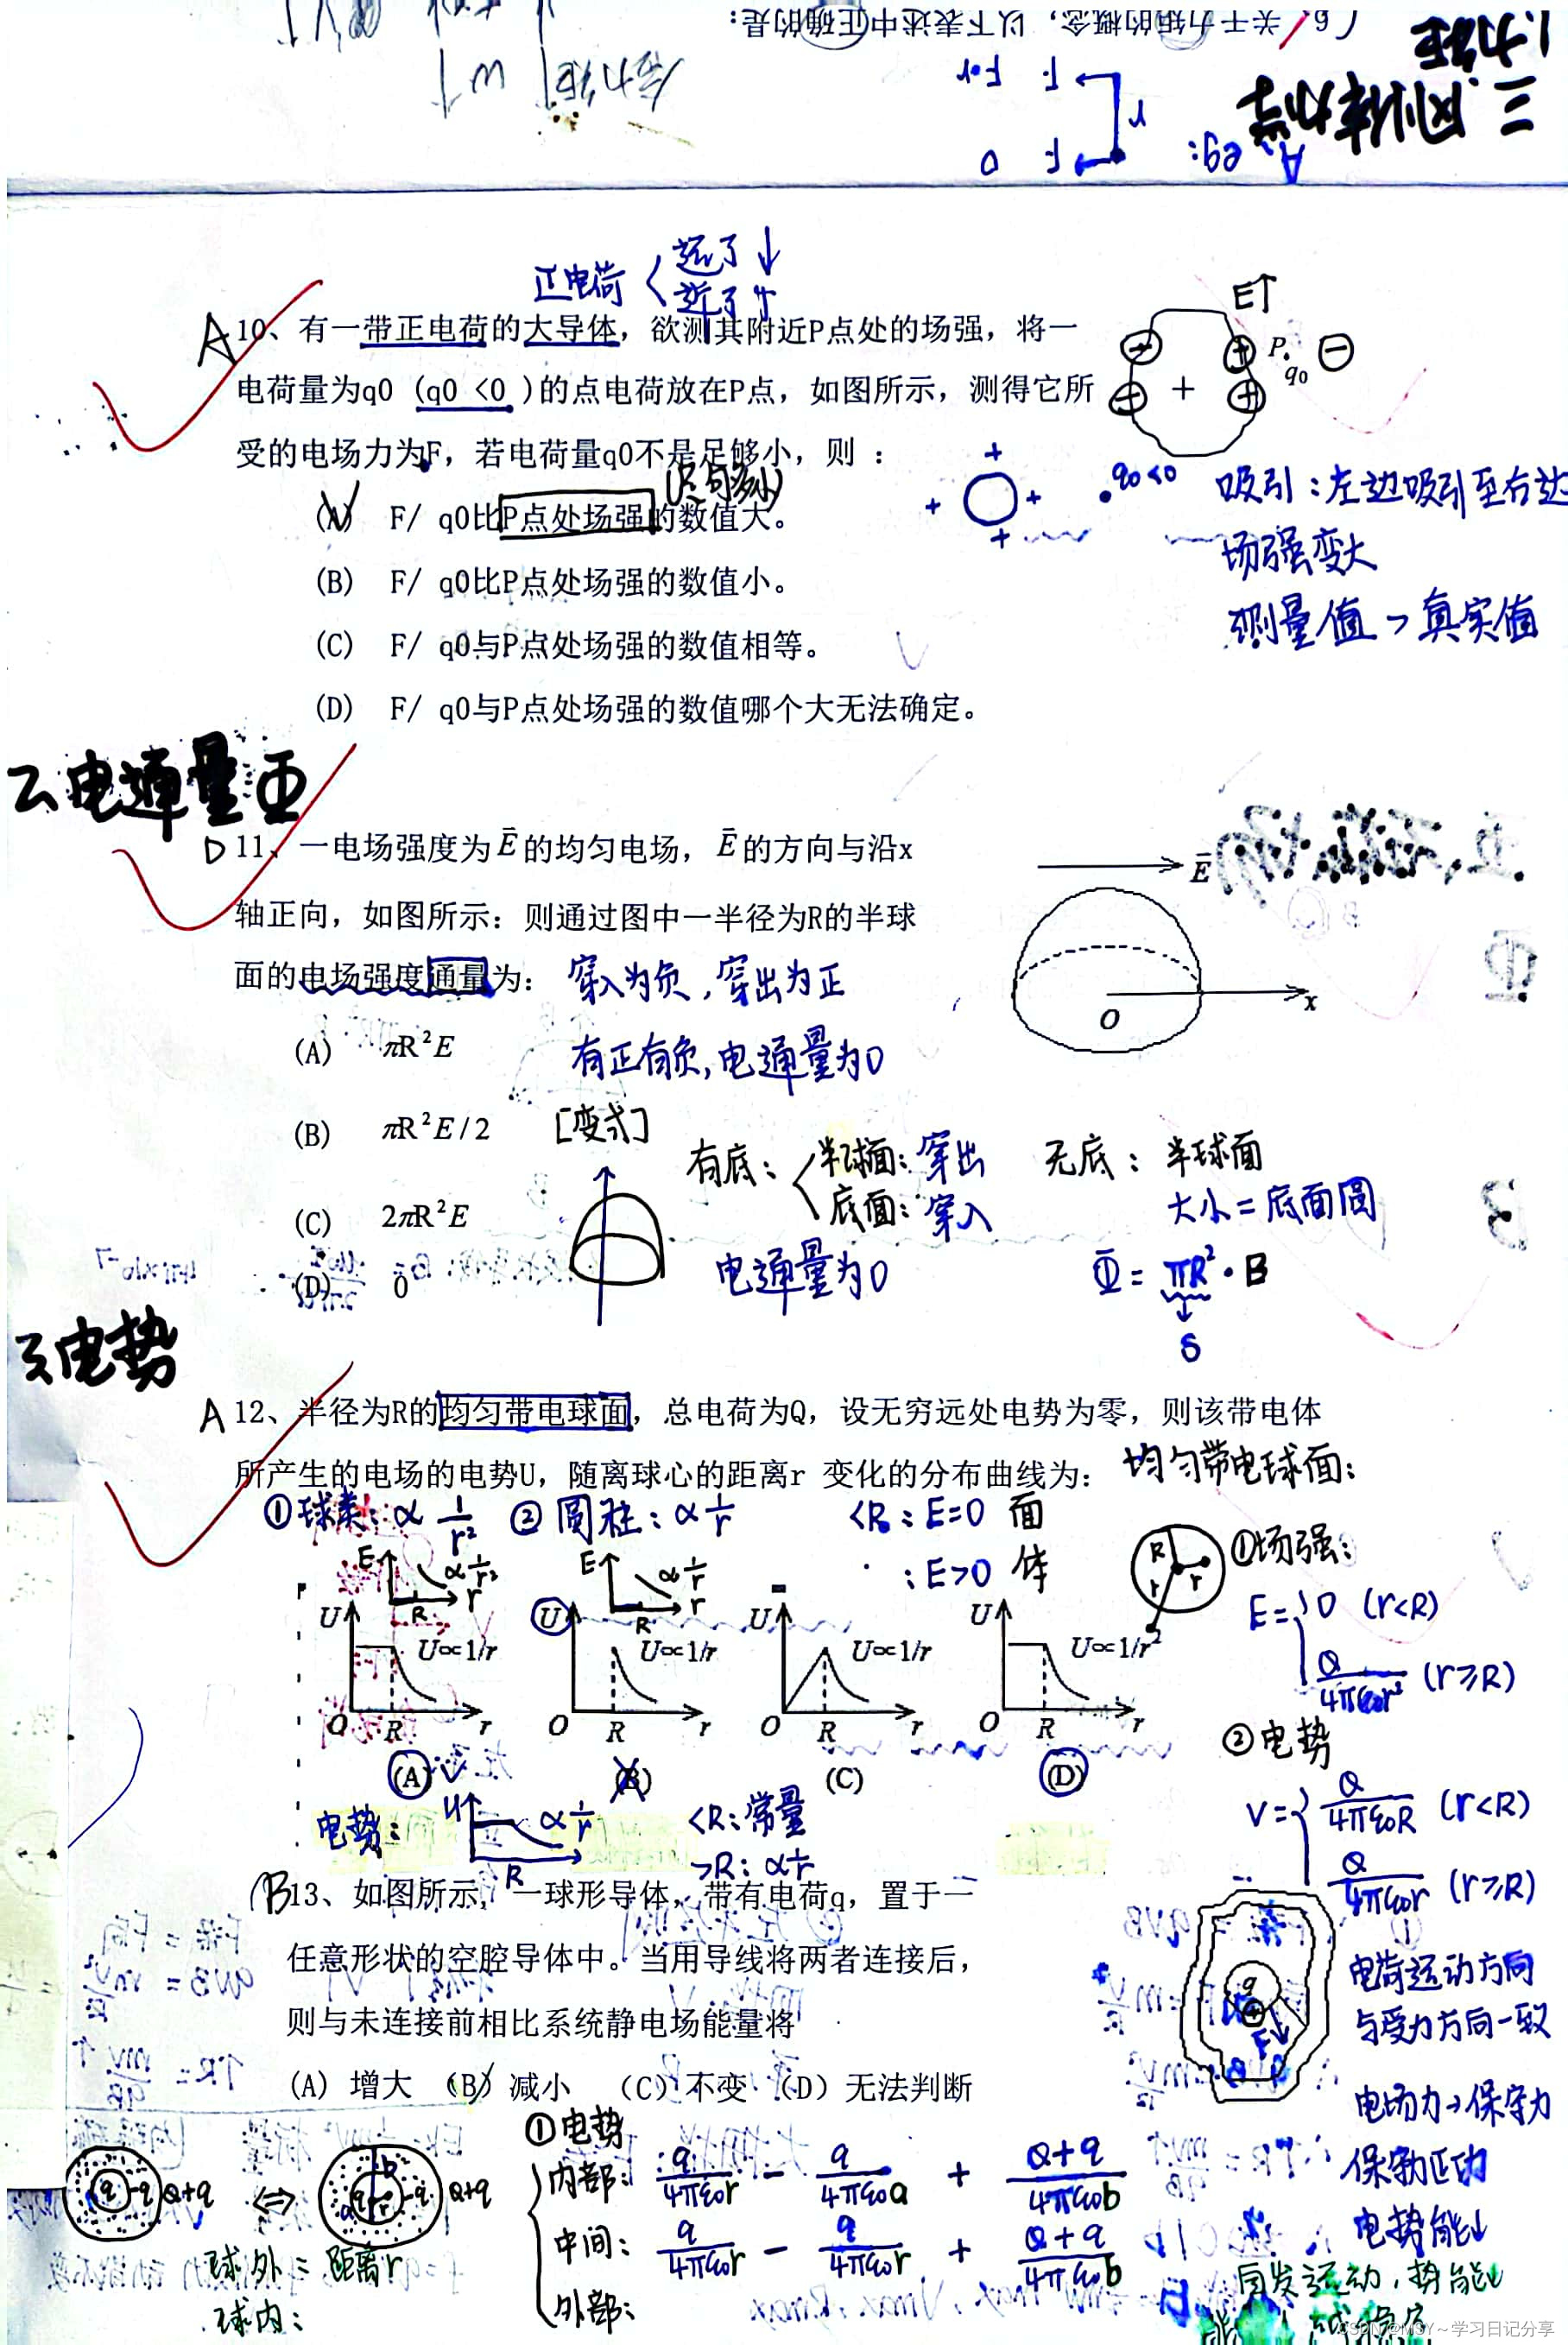 6、关于力矩的概念，以下表述中正确的是：
三.刚体力学
1.力矩
合力矩
eg:
r
F
0
F
F·r
正电荷
远了↓
近了↑
A
10、有一带正电荷的大导体，欲测其附近P点处的场强，将一
电荷量为q0 (q0 <0 )的点电荷放在P点，如图所示，测得它所
受的电场力为F，若电荷量q0不是足够小，则 ：
(足够小)
(A) F/ q0比P点处场强的数值大。
(B) F/ q0比P点处场强的数值小。
(C) F/ q0与P点处场强的数值相等。
(D) F/ q0与P点处场强的数值哪个大无法确定。
E↑
P
q0
+
q0<0
吸引：左边吸引至右边
场强变大
测量值 > 真实值
2.电通量Φ
D
11、一电场强度为Ē的均匀电场，Ē的方向与沿x
轴正向，如图所示：则通过图中一半径为R的半球
面的电场强度通量为：
穿入为负，穿出为正
有正有负，电通量为0
(A) πR²E
(B) πR²E/2
(C) 2πR²E
(D) 0
Ē
O
x
[变式]
有底：
半球面：穿出
底面：穿入
电通量为0
无底：半球面
大小=底面圆
Φ= πR²·B
S
3.电势
A
12、半径为R的均匀带电球面，总电荷为Q，设无穷远处电势为零，则该带电体
所产生的电场的电势U，随离球心的距离r 变化的分布曲线为：
均匀带电球面：
①球类：∝ 1/r²
②圆柱：∝ 1/r
<R：E=0 面
：E>0 体
E
∝1/r²
R
r
E
∝1/r
R
r
U
U∝1/r
O
R
r
(A)
U
U∝1/r
O
R
r
(B)
U
U∝1/r
O
R
r
(C)
U
U∝1/r²
O
R
r
(D)
R
r
r
①场强：
E= 0 (r<R)
Q/4πε0r² (r≥R)
②电势
V= Q/4πε0R (r<R)
Q/4πε0r (r≥R)
电势：
U
∝1/r
R
<R：常量
>R：∝1/r
B
13、如图所示，一球形导体，带有电荷q，置于一
任意形状的空腔导体中。当用导线将两者连接后，
则与未连接前相比系统静电场能量将
(A) 增大 (B) 减小 (C) 不变 (D) 无法判断
q
F
电荷运动方向
与受力方向一致
电场力→保守力
保守力正功
电势能↓
自发运动，势能↓
q
-q
Q+q
⇔
a
b
q
r
-q
Q+q
球外：距离r
球内：
①电势
内部： q/4πε0r − q/4πε0a + Q+q/4πε0b
中间： q/4πε0r − q/4πε0r + Q+q/4πε0b
外部：
CSDN @MSY～学习日记分享